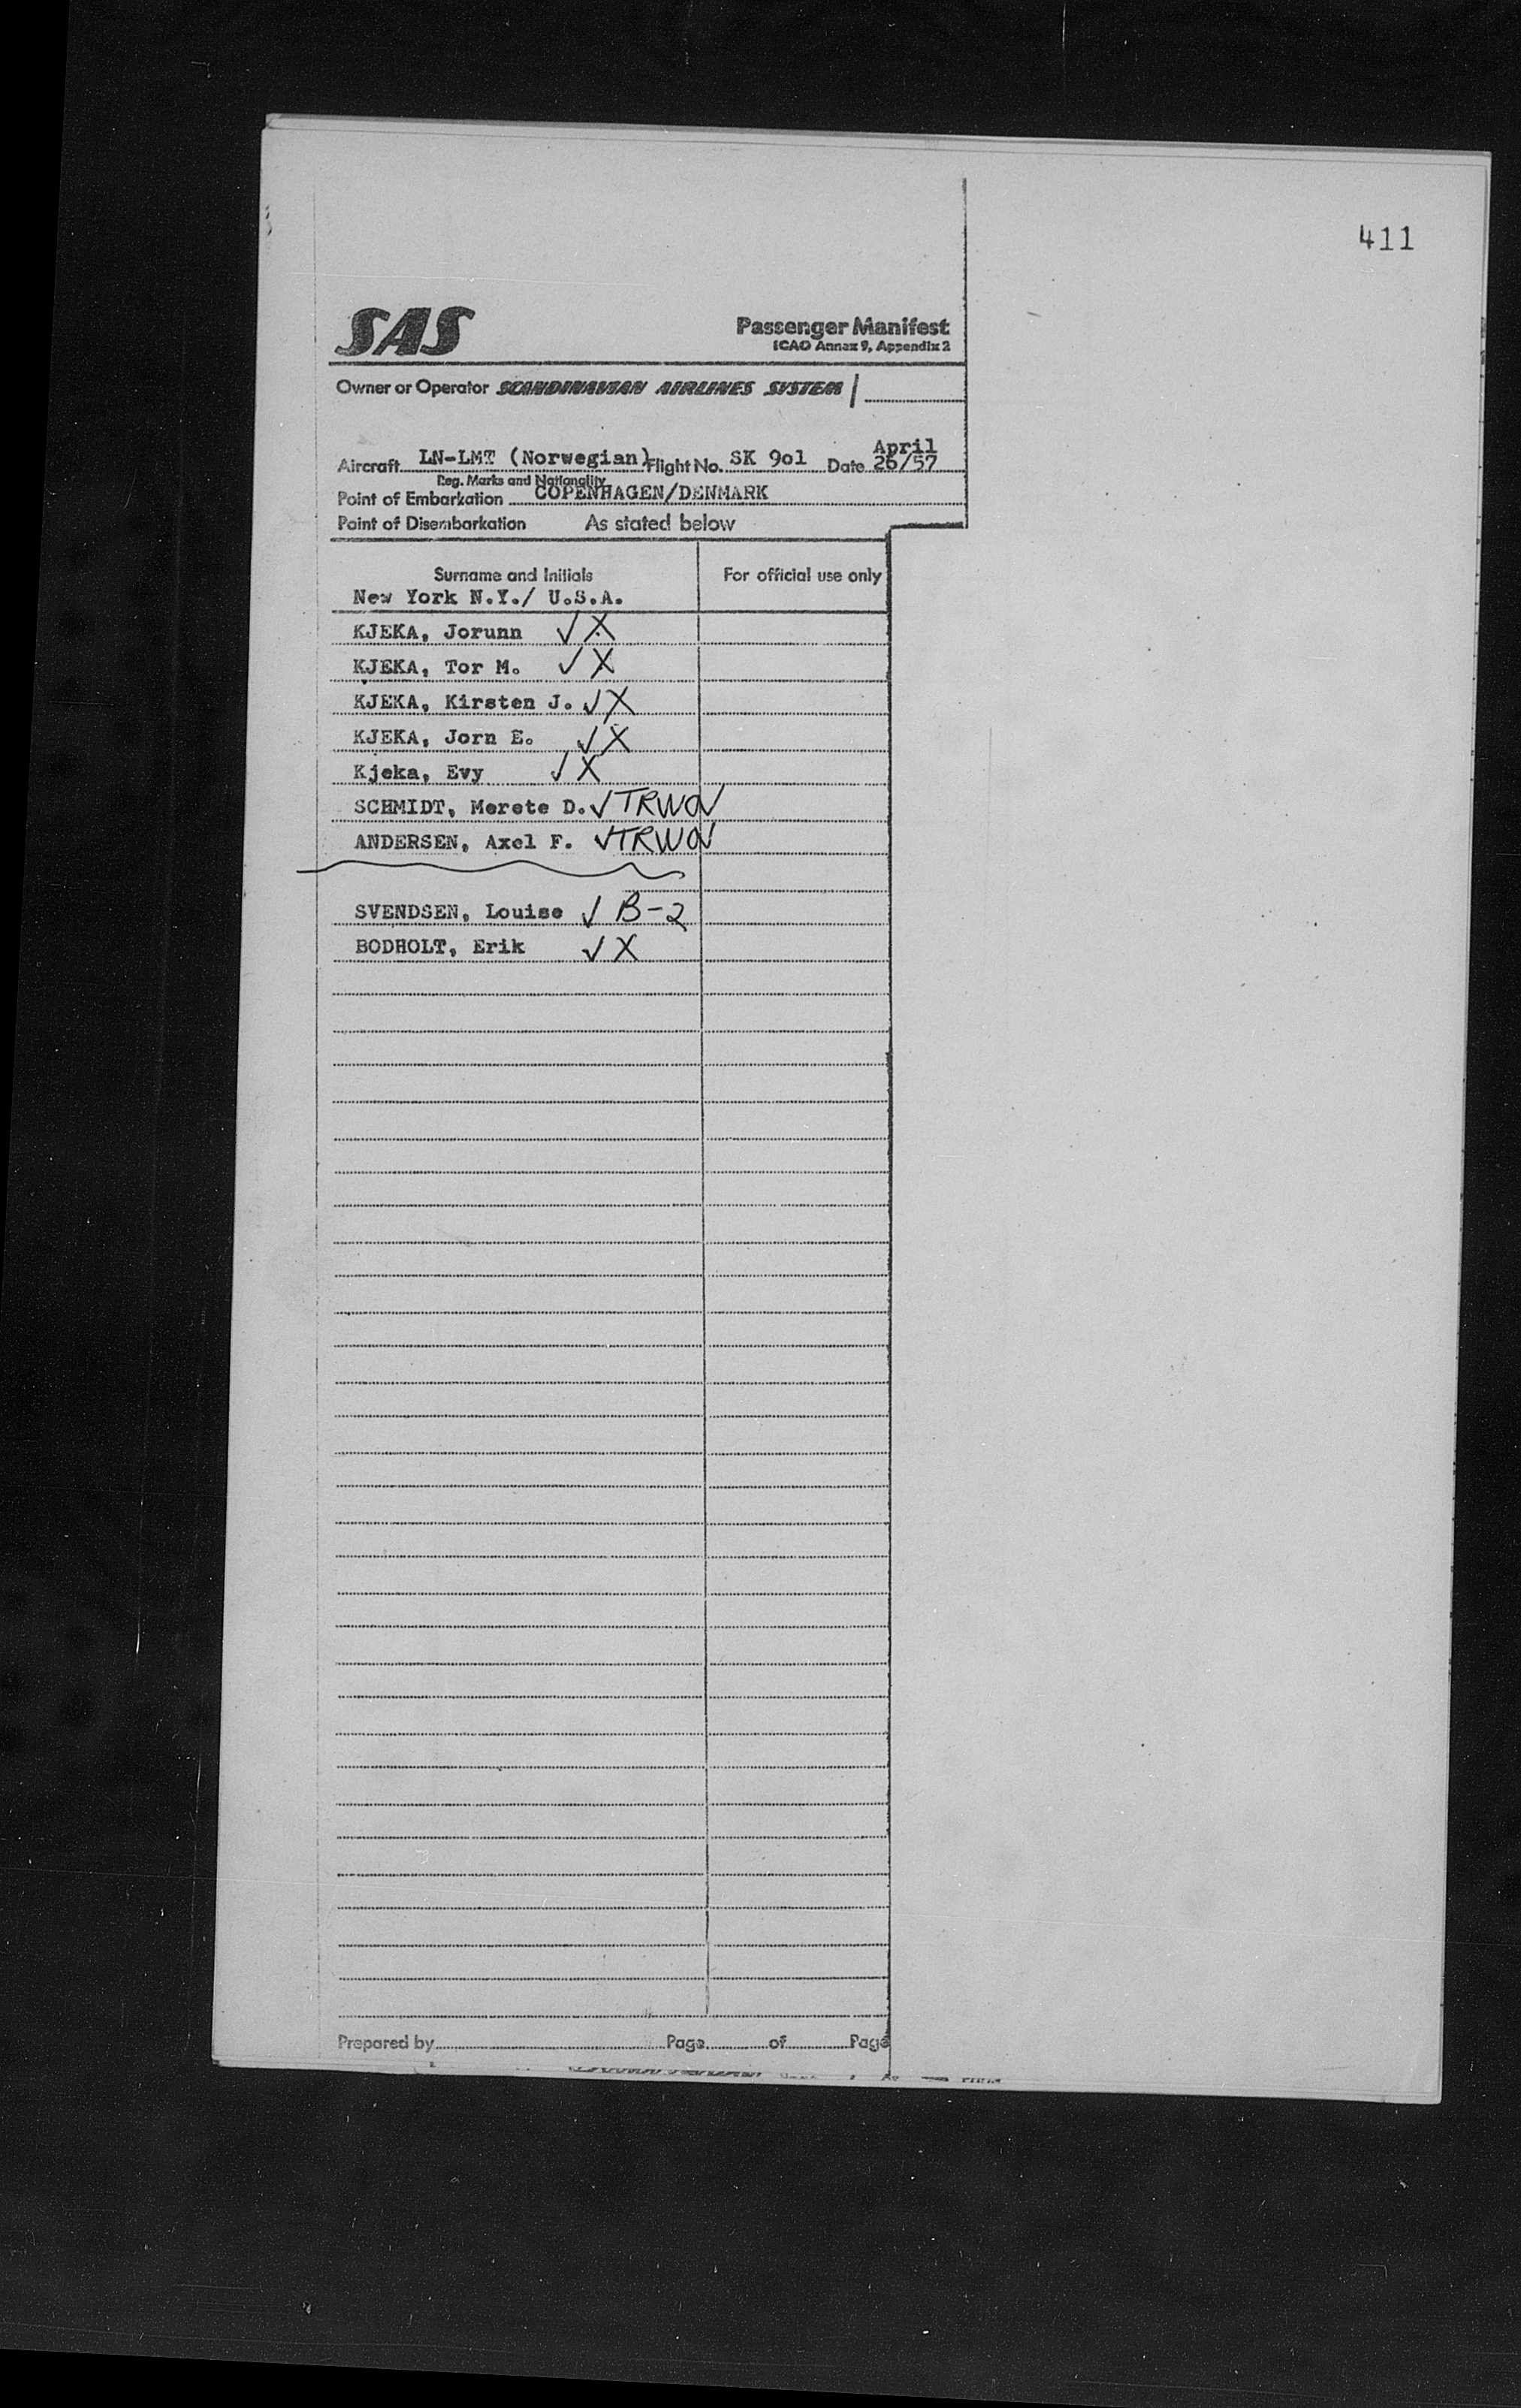 411
SAS
Passenger Manifest
ICAO Annex 9, Appendix 2
Owner or Operator SCANDINAVIAN AIRLINES SYSTEM
Aircraft LN-LMT (Norwegian) Flight No. SK 9o1 Date April 26/57
Reg. Marks and Nationality
Point of Embarkation COPENHAGEN/DENMARK
Point of Disembarkation As stated below
Surname and Initials For official use only
New York N.Y./ U.S.A.
KJEKA, Jorunn ✓ X
KJEKA, Tor M. ✓ X
KJEKA, Kirsten J. ✓ X
KJEKA, Jorn E. ✓ X
Kjeka, Evy ✓ X
SCHMIDT, Merete D. ✓ TRWOV
ANDERSEN, Axel F. ✓ TRWOV
SVENDSEN, Louise ✓ B-2
BODHOLT, Erik ✓ X
Prepared by Page of Page